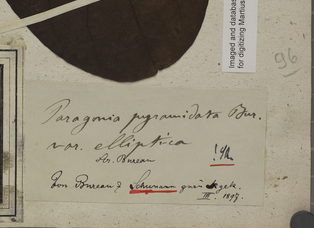 Imaged and databas
for digitizing Martius
96
Paragonia pyramidata Bur.
var. elliptica
Bureau
! Sch.
Von Bureau & Schumann
III. 1897.